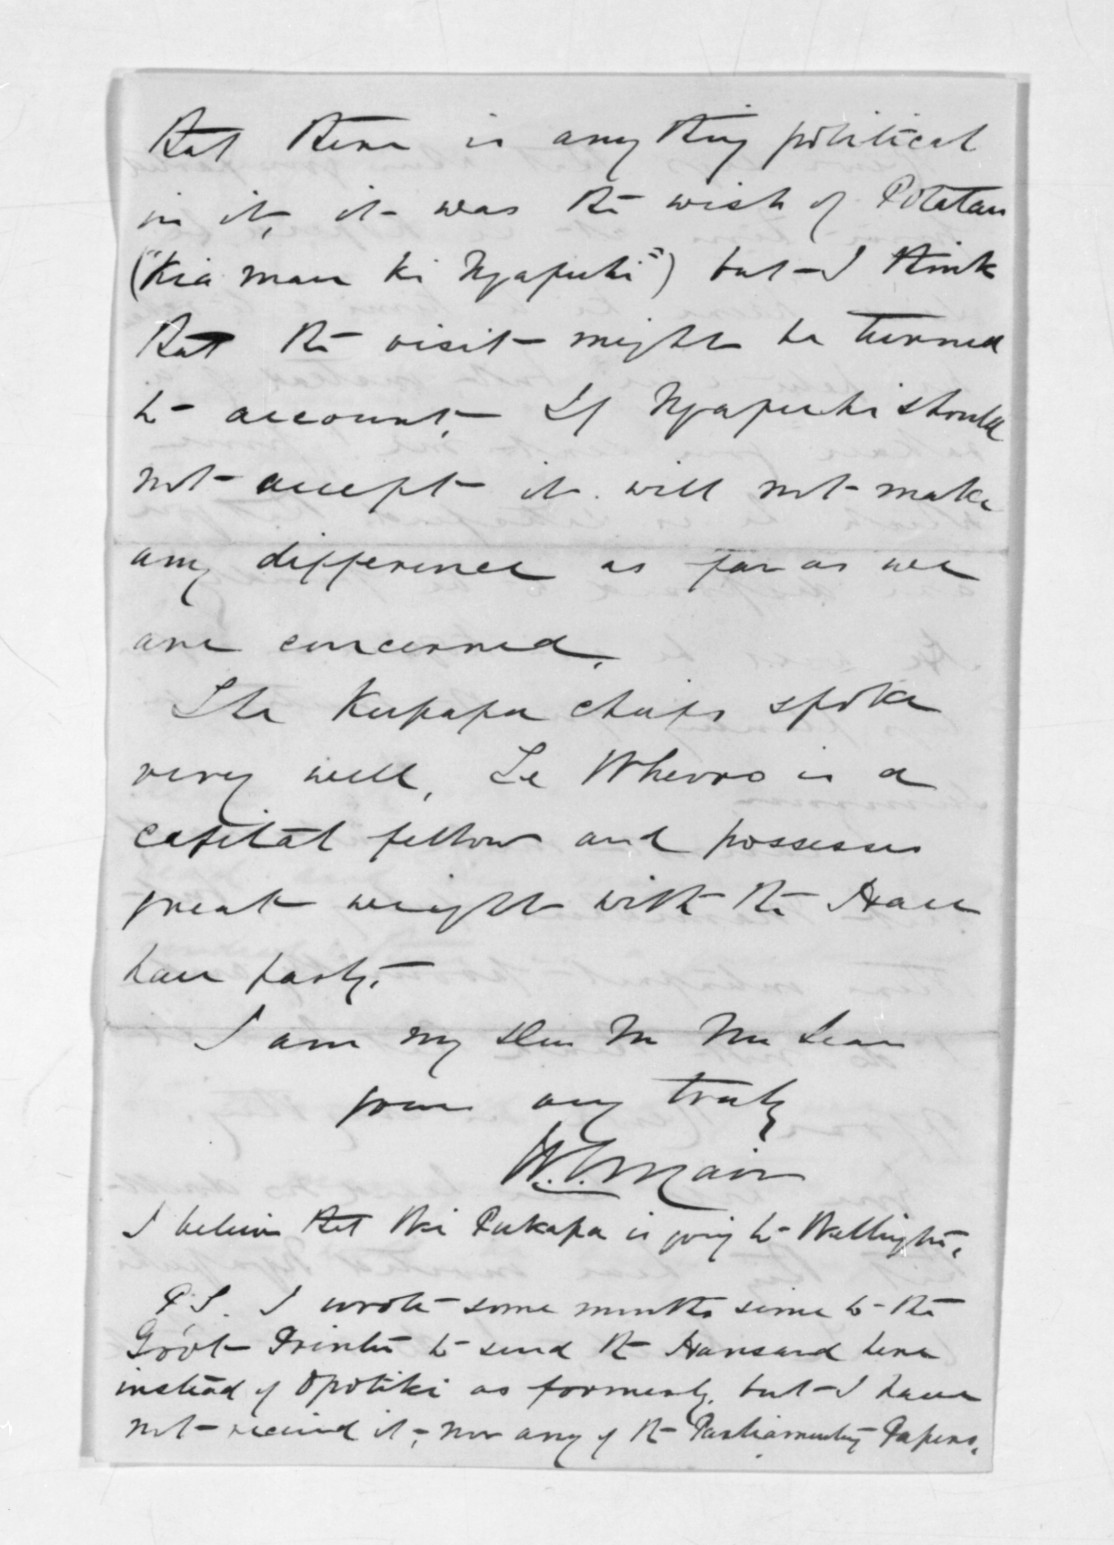 that there is any thing political
in it, it was the wish of Potatau
("Kia mau ki Ngapuhi") but I think
that the visit might be turned
to account. If Ngapuhi should
not accept it will not make
any difference as far as we
are concerned.
The Kupapa chiefs spoke
very well, Te Wheoro is a
capital fellow and possesses
great weight with the Hau
hau party.
I am my dear Mr McLean
yours very truly
W.G. Mair
I believe that Wi Pukapa is going to Wellington.
P.S. I wrote some months since to the
Govt Printer to send the Hansard here
instead of Opotiki as formerly, but I have
not received it, nor any of the Parliamentary Papers.